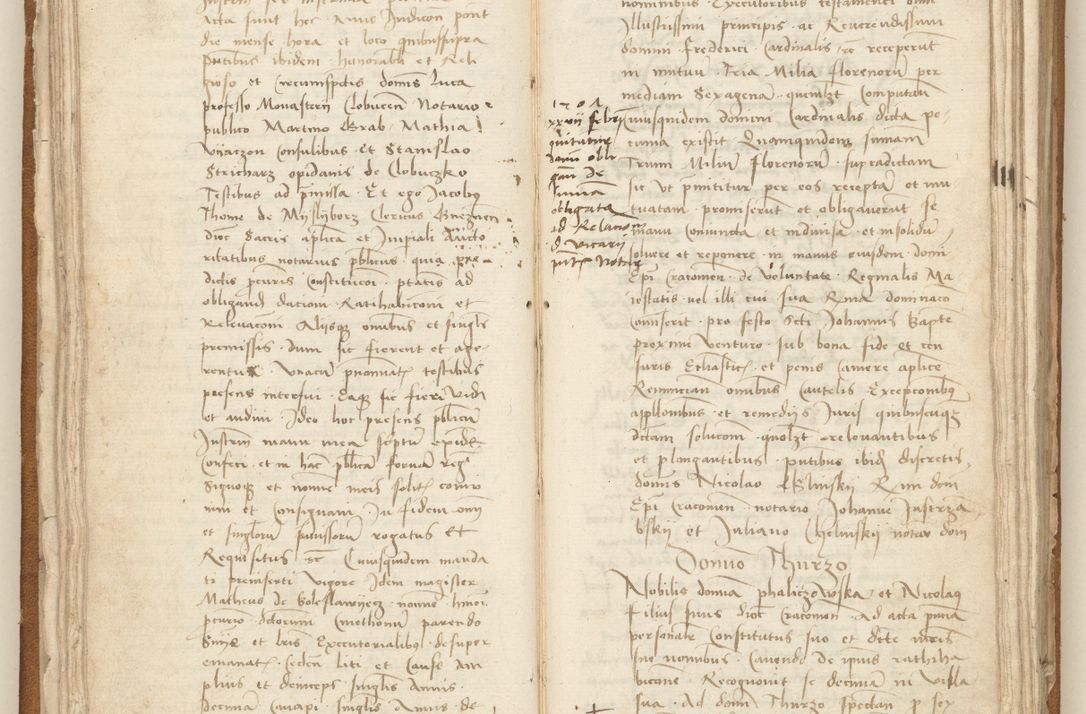 Acta sunt hec Anno Indicon pont
die mense hora et loco quibussupra
pntibus ibidem honorabli et Reli
gioso et circumspctis domis luca
professo Monasterii Clobucen Notario
publico Martino Grab Mathia
consulibus Et Stanislao
Stricharz opidanis de Clobuczko
Testibus ad pmissa Et ego Jacobus
Thome de Myslyborz Clericus Gneznen
dioc Sacris aplica et Impiali Aucto
ritatibus notarius pblicus quia pre
dictis pcuris constitucoi ptatis ad
obligand dacioni Ratihabicioni et
Relevacom Aliisque omibus et singlis
premissis dum sic fierent et age
rentur Unacum pnominatis testibus
presens interfui Eaque sic fieri vidi
et audivi Ideo hoc presens pblicum
Instrm manu mea scptum
confeci et in hac pblica formam regi
Signoque et nomine meis solitis comu
nivi et consignavi In fidem omi
et singlorum pmissorum rogatus et
Requisitus etc Cuiusquidem manda
ti preinserti vigore Idem magister
Matheus de Boleslawyecz nomine
pcurio dictorum parendo
Snie et lris Executorialibus desuper
emanatis eidem liti et cause Am
plius et deinceps singlis Annis
decima singlis Annis de
nominibus Executoribus testamenti olim
Illustrissimi principis ac Reverendissimi
domini Frederici Cardinalis etc receperunt
in mutuum Tria Milia florenorum per
mediam Sexagenam quemlibet computan
1504
xxvii febr
quitatur
obli
de
summa
obligata
ad Relacion
d vicarii
pnte Notar
cuiusquidem domini Cardinalis dicta pe
cunia existit Quamquidem sumam
Trium Milium florenorum supradictam
sic ut pmittitur per eos receptam et mu
tuatam promiserunt et obligaverunt se
manu coniuncta et indivisa et insolidum
solvere et reponere in manus eiusdem domi
Epi cracovien de voluntate Reginalis Ma
iestatis vel illi cui sua Rma dominacio
comiserit pro festo Scti Johannis Bapte
proxime venturo sub bona fide et cen
suris Eccliasticis et penis camere aplice
Renuncian omibus cautelis Excepcionibus
appllonibus et remediis Juris quibuscumque
dictam solucoem quolibet relevantibus
et plongantibus pntibus ibidem discretis
domis Nicolao Rmi domi
Epi cracovien notario Johanne Jastrzą
bskij et Juliano Chelmskij notar dom
Domino Thurzo
Nobilis domina phaliczowska et Nicolaus
Filius suus dioc cracovien Ad acta pncia
personaliter constitutus suo et dicte mris
sue nominibus Cavendo de ipsius rathiha
bicione Recognovit se decimam in villa
sua Ad domi Thurzo spectan p sex